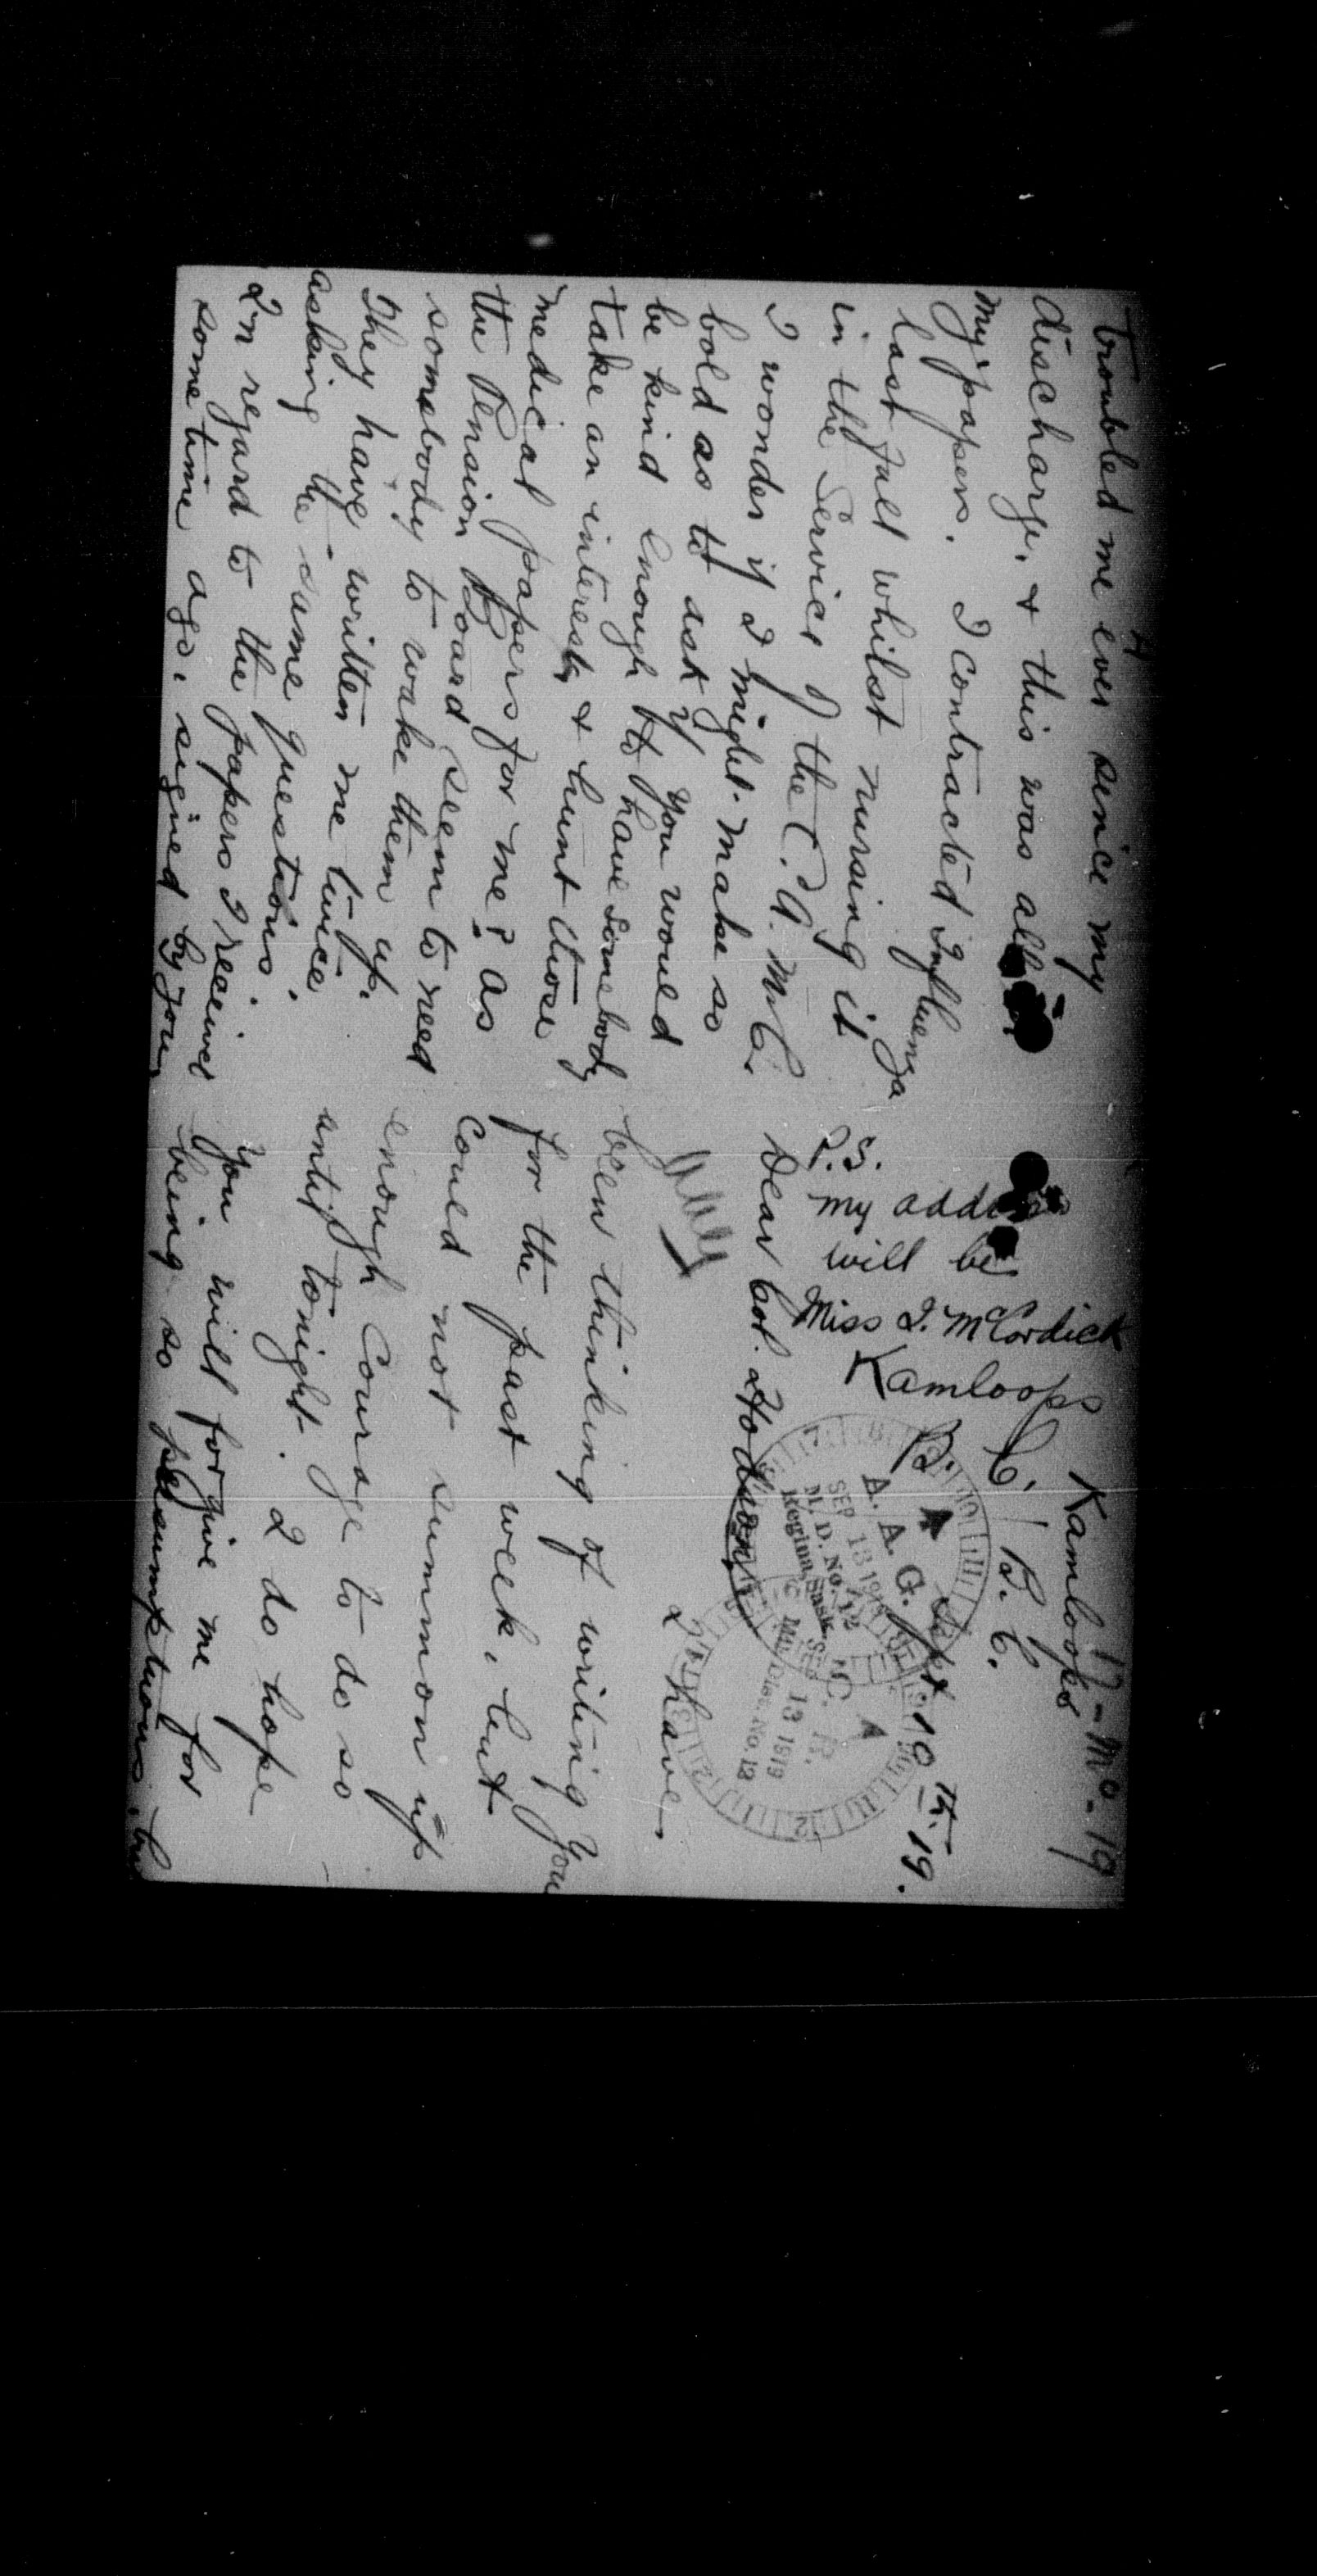 4
trouble me ever since my
discharge, & this was all
my papers. I contracted Influenza
last fall whilst nursing it
in the Service of the C. A. M. C.
I wonder if I might make so
bold as to ask if you would
be kind enough to have somebody
take an interest, & hunt those
medical papers for me? as
the Pension Board seem to need
somebody to wake them up.
They have written me twice
asking the same questions.
In regard to the papers I received
some time ago, signed by you
17-Mc-19
Kamloops
B. C.
Sept 10th-19.
P.S.
my address
will be
Miss I. McCordick
Kamloops
B. C.
A. A. G.
SEP 13 1919
M. D. No. 12
Regina, Sask.
C. R.
SEP 13 1919
Mil. Dist. No. 12
Dear Col. Hodson,
I have
been thinking of writing you
for the past week, but
could not summon up
enough courage to do so
until tonight. I do hope
you will forgive me for
being so presumptuous,